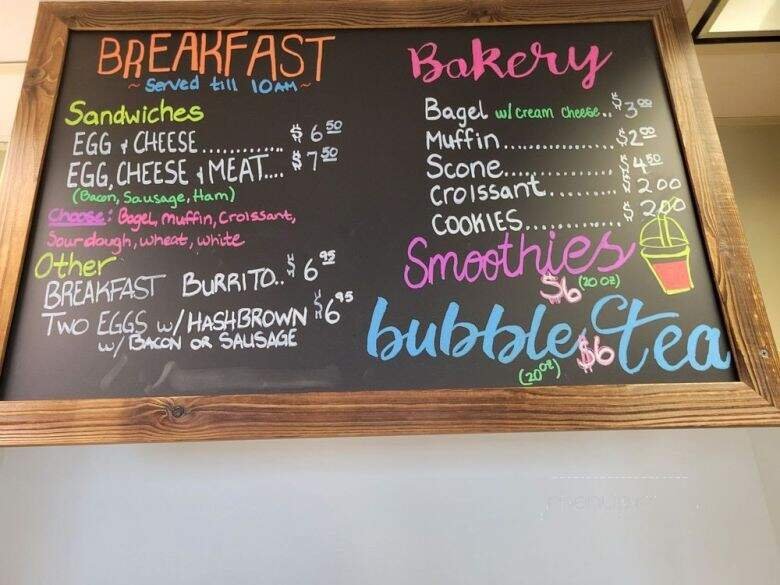 BREAKFAST
~ Served till 10AM ~
Sandwiches
EGG & CHEESE............. $6 50
EGG, CHEESE & MEAT.... $7 50
(Bacon, Sausage, Ham)
Choose: Bagel, Muffin, Croissant,
Sourdough, wheat, white
Other
BREAKFAST BURRITO.. $6 95
TWO EGGS w/ HASHBROWN $6 95
w/ BACON OR SAUSAGE
Bakery
Bagel w/ cream cheese.. $3 00
Muffin............... $2 00
Scone............... $4 50
Croissant.......... $2 00
COOKIES............. $2 00
Smoothies
$6 (20 oz)
bubble tea
(20 oz) $6